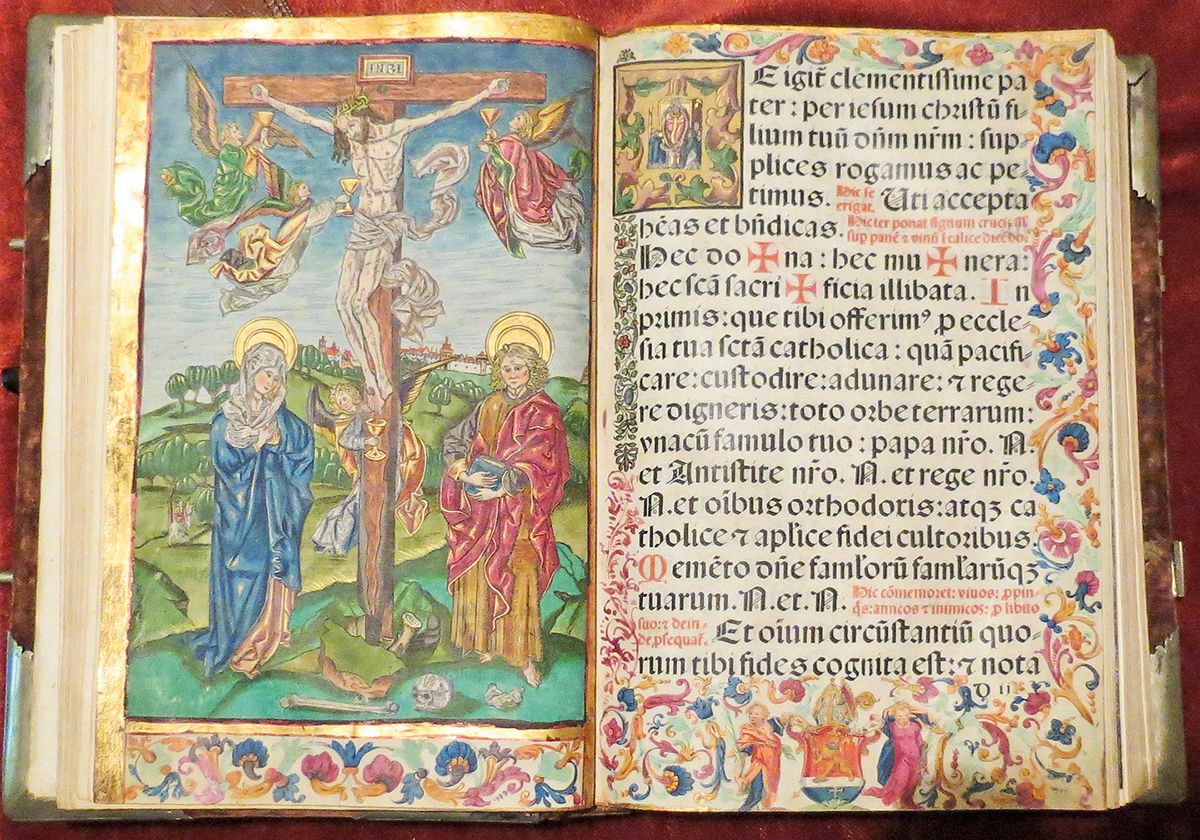 INRI
E igit̃ clementissime pa
ter : per iesum christū fi-
lium tuū dñm nr̃m : sup-
plices rogamus ac pe-
timus. Hic se Uti accepta
erigat.
hẽas et bñdicas. Hic ter ponat signum crucis
sup panē ⁊ vinū ī calice dicēdo.
Hec do ✠ na : hec mu ✠ nera:
hec scã sacri ✠ ficia illibata. In
primis : que tibi offerimꝰ ꝓ eccle-
sia tua sctã catholica : quã pacifi-
care : custodire : adunare : ⁊ rege-
re digneris : toto orbe terrarum :
vnacū famulo tuo : papa nr̃o. N.
et Antistite nr̃o. N. et rege nr̃o.
N. et oĩbus orthodoxis : atqꝫ ca
tholice ⁊ apl'ice fidei cultoribus.
Memēto dñe faml'orū faml'arūqꝫ
tuarum. N. et. N. Hic cōmemoret : viuos : ꝓpin-
q̃s : amicos ⁊ inimicos : ꝓ libito
suo : ⁊ dein-
de ꝓsequat̃. Et oĩum circūstantiū quo-
rum tibi fides cognita est : ⁊ nota